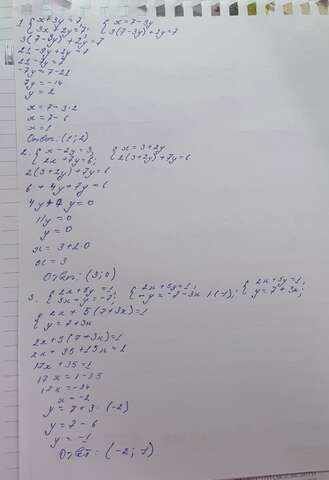 1. { x+3y=7, { x=7-3y
{ 3x+2y=7; { 3(7-3y)+2y=7
3(7-3y)+2y=7
21-9y+2y=7
21-7y=7
-7y=7-21
7y=-14
y=2
x=7-3·2
x=7-6
x=1
Ответ: (1; 2)
2. { x-2y=3, { x=3+2y
{ 2x+7y=6; { 2(3+2y)+7y=6
2(3+2y)+7y=6
6+4y+7y=6
4y+7y=0
11y=0
y=0
x=3+2·0
x=3
Ответ: (3; 0)
3. { 2x+5y=1, { 2x+5y=1, { 2x+5y=1,
{ 3x-y=-7; { -y=-7-3x |(-1); { y=7+3x;
{ 2x+5(7+3x)=1
{ y=7+3x
2x+5(7+3x)=1
2x+35+15x=1
17x+35=1
17x=1-35
17x=-34
x=-2
y=7+3·(-2)
y=7-6
y=-1
Ответ: (-2; -1)